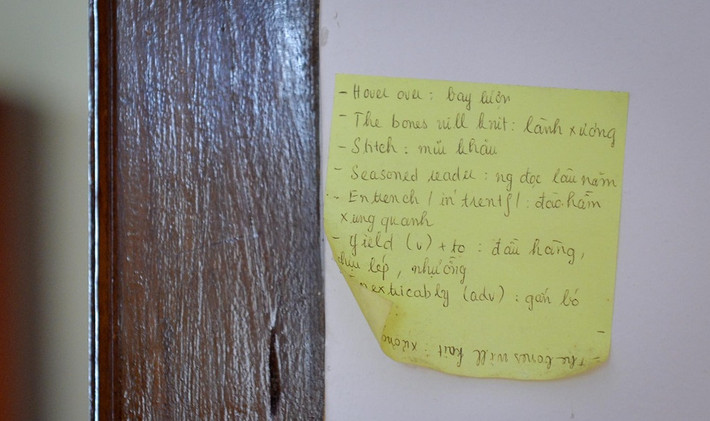 - Hover over : bay lượn
- The bones will knit : lành xương
- Stitch : mũi khâu
- Seasoned reader : ng đọc lâu năm
- Entrench / in'trentʃ / : đào hầm
xung quanh
- Yield (v) + to : đầu hàng,
chịu lép, nhường
inextricably (adv) : gắn bó
-
- The bones will knit : xương